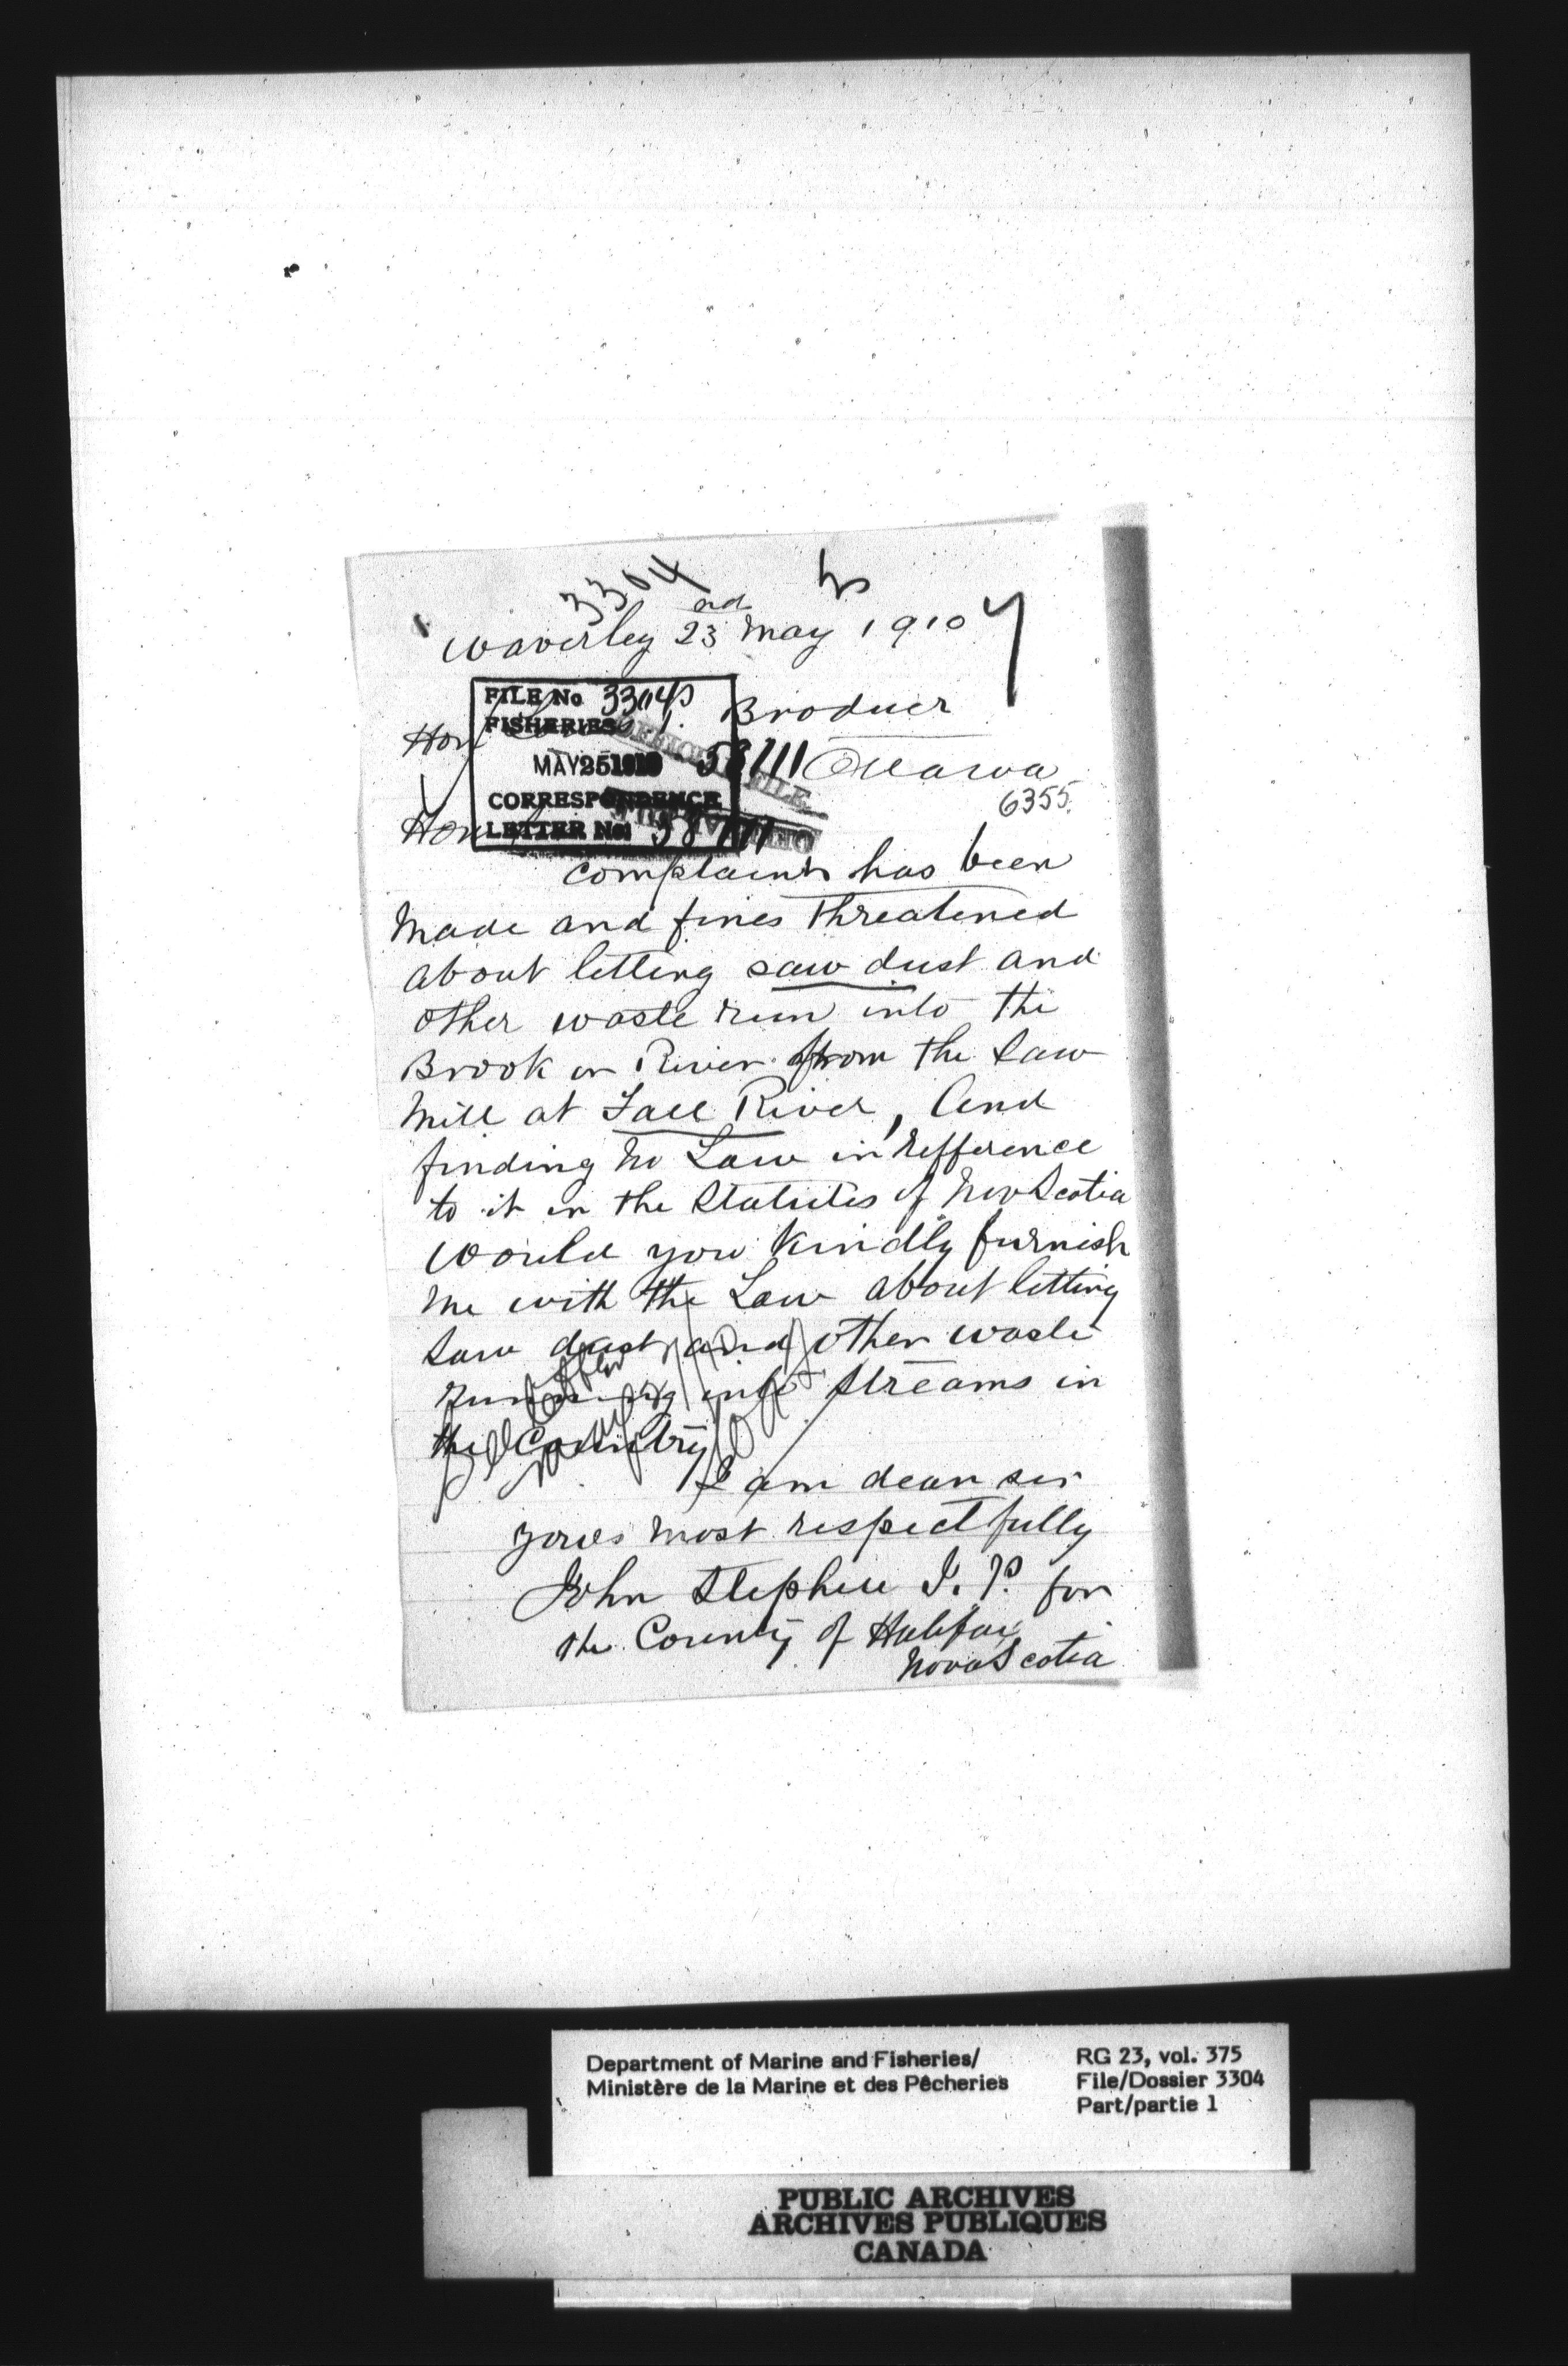 3304
Waverley 23rd May 1910
FILE No 3304
FISHERIES
Hon Broduer
MAY 25 1910 58111 Ottawa
6355
CORRESPONDENCE
LETTER No. 58111
Hon
complaints has been
made and fines threatened
about letting saw dust and
other waste run into the
Brook or River from the saw
mill at Fall River, And
finding no Law in refference
to it in the Statutes of Nov Scotia
would you kindly furnish
me with the Law about letting
saw dust and other waste
running into streams in
the Country
I am dear sir
yours most respectfully
John Stephen J. P. for
the County of Halifax
Nova Scotia
Department of Marine and Fisheries/
Ministère de la Marine et des Pêcheries
RG 23, vol. 375
File/Dossier 3304
Part/partie 1
PUBLIC ARCHIVES
ARCHIVES PUBLIQUES
CANADA